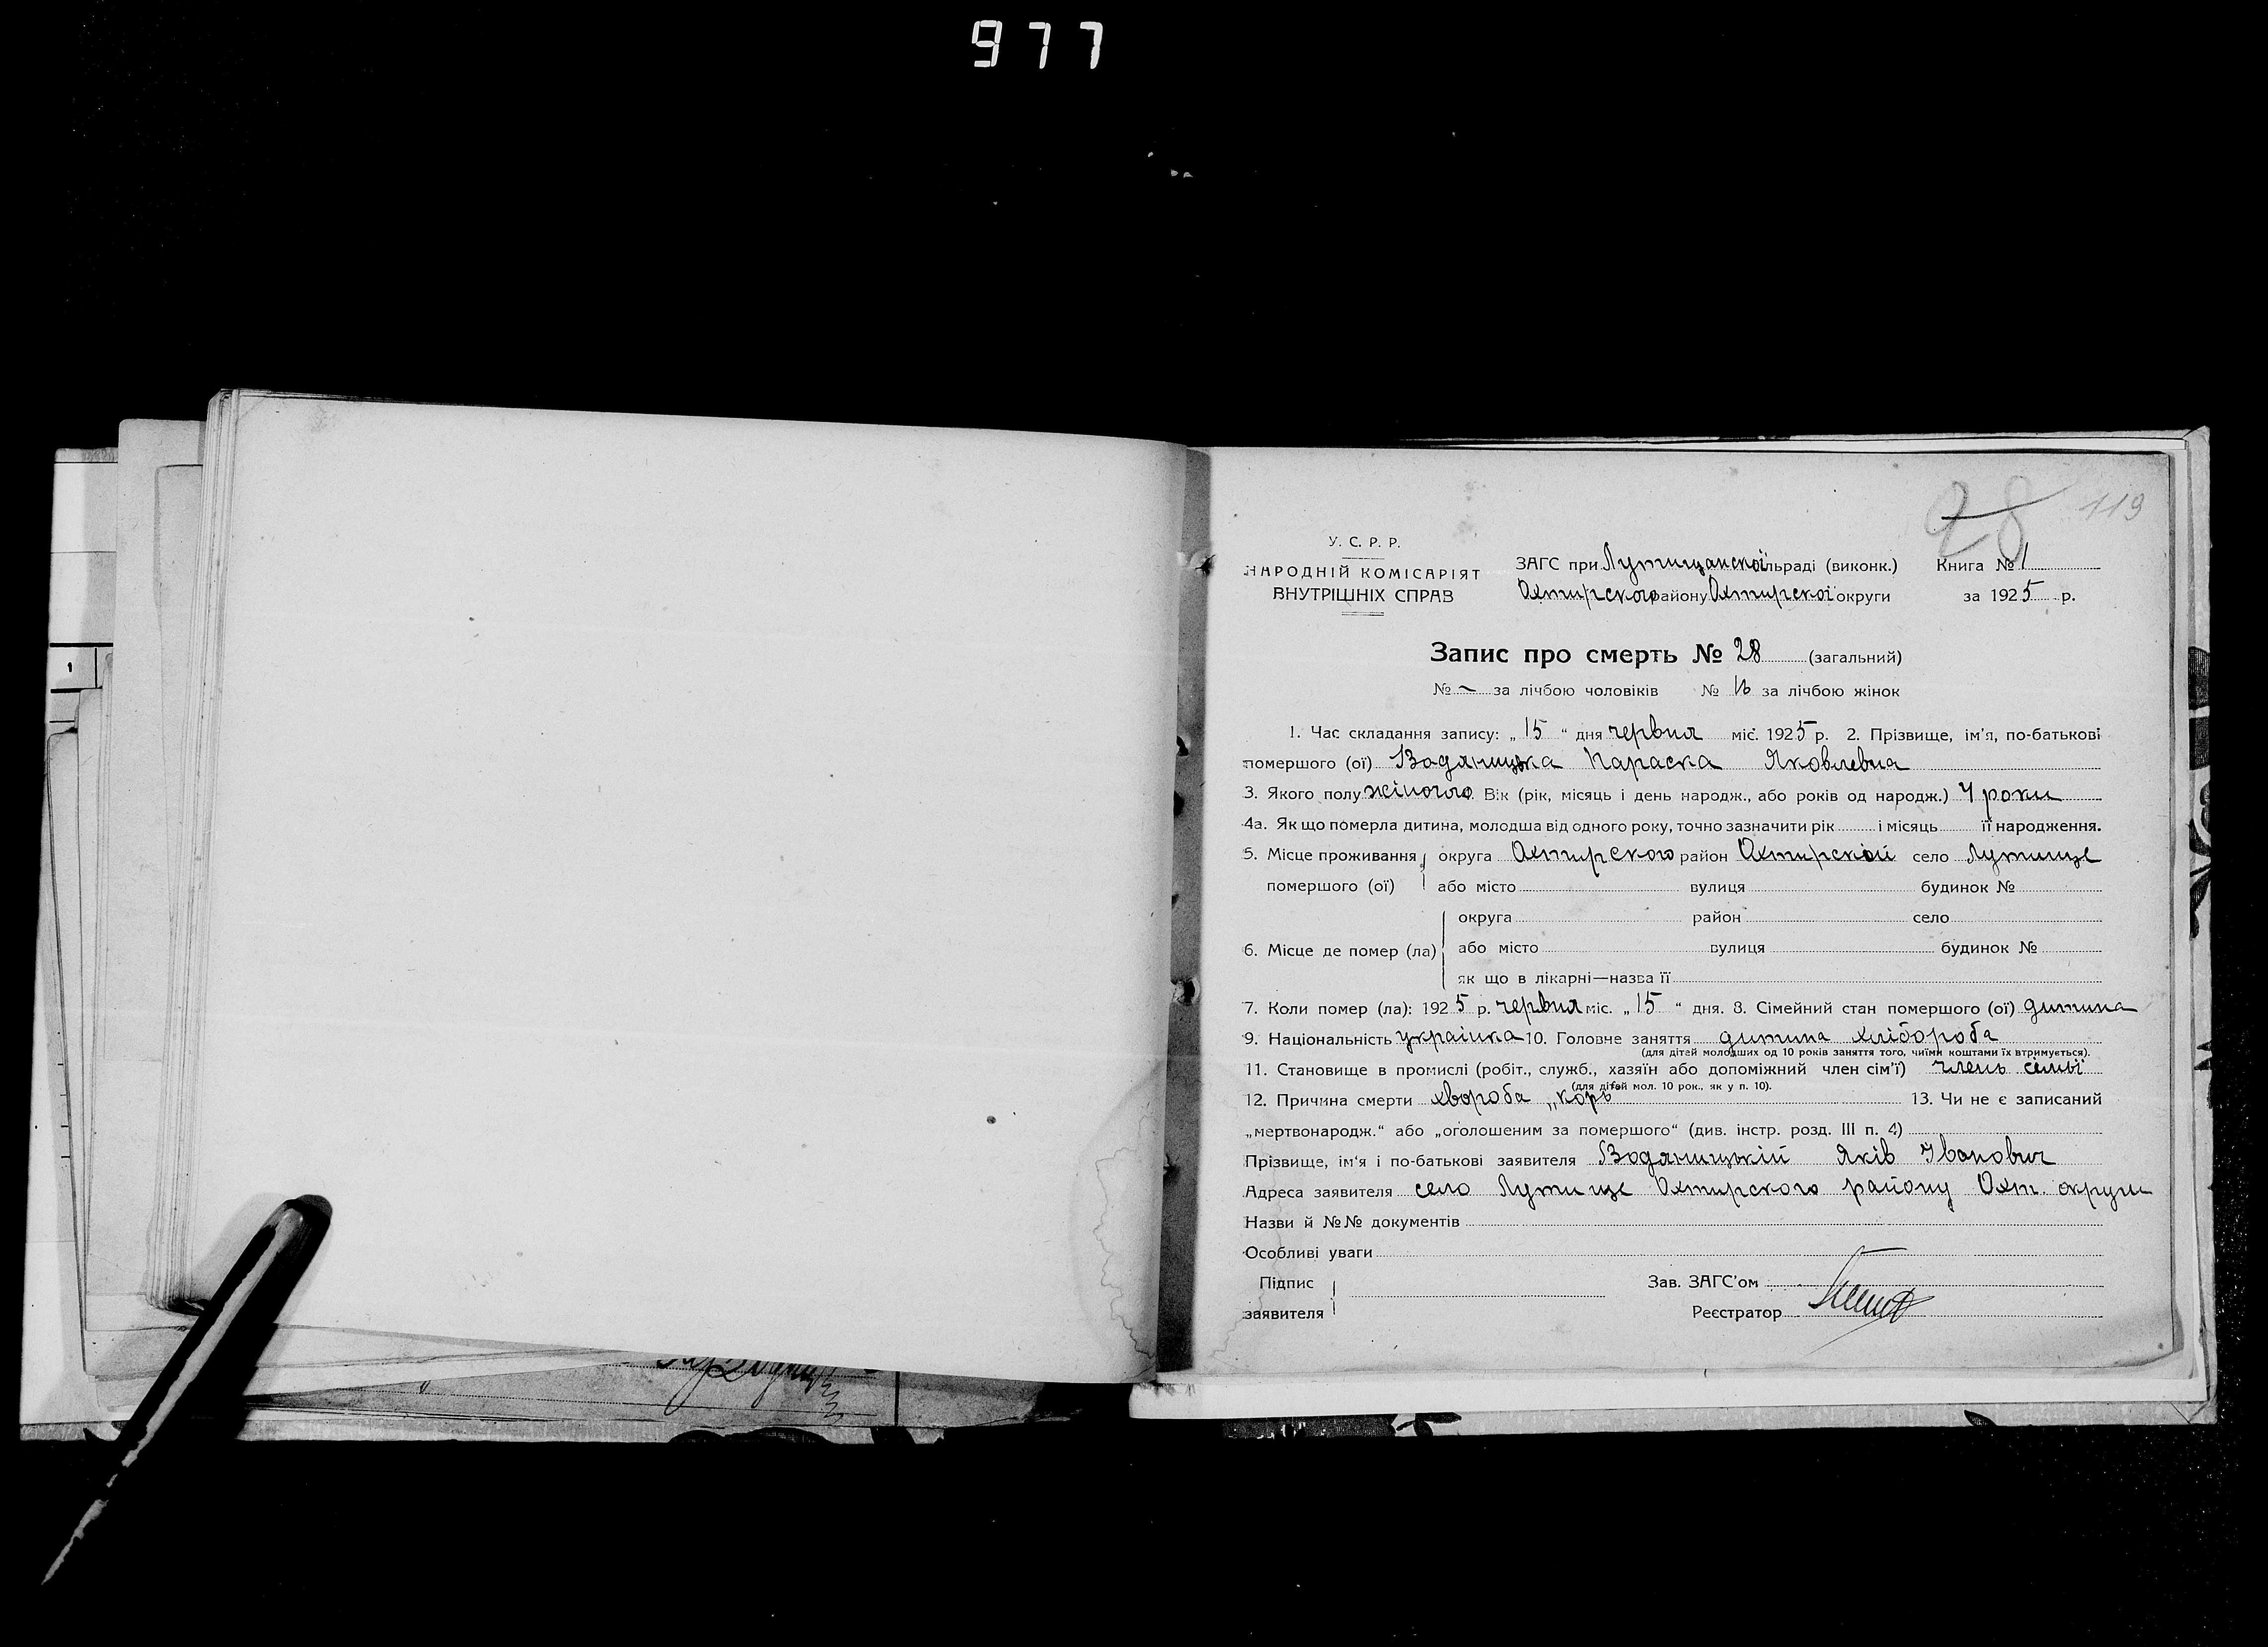 977
28 119
У. С. Р. Р.
НАРОДНІЙ КОМІСАРІЯТ
ВНУТРІШНІХ СПРАВ
ЗАГС при Лутищанскоі льраді (виконк.) Книга № 1
Охтирского району Охтирскоі округи за 1925 р.
Запис про смерть № 28 (загальний)
№ — за лічбою чоловіків № 16 за лічбою жінок
1. Час складання запису: „15“ дня червня міс. 1925 р. 2. Прізвище, ім'я, по-батькові
помершого (ої) Водяницька Параска Яковлевна
3. Якого полу жіночого Вік (рік, місяць і день народж., або років од народж.) 4 роки
4а. Як що померла дитина, молодша від одного року, точно зазначити рік і місяць її народження.
5. Місце проживання округа Охтирского район Охтирскій село Лутище
помершого (ої) або місто вулиця будинок №
округа район село
6. Місце де помер (ла) або місто вулиця будинок №
як що в лікарні—назва її
7. Коли помер (ла): 1925 р. червня міс. „15“ дня. 8. Сімейний стан помершого (ої) дитина
9. Національність украінка 10. Головне заняття дитина хлібороба
(для дітей молодших од 10 років заняття того, чиїми коштами їх втримується).
11. Становище в промислі (робіт., служб., хазяїн або допоміжний член сім'ї) члень сімьі
(для дітей мол. 10 рок., як у п. 10).
12. Причина смерти хвороба „корь 13. Чи не є записаний
„мертвонародж.“ або „оголошеним за помершого“ (див. інстр. розд. III п. 4)
Прізвище, ім'я і по-батькові заявителя Водяницькій Яків Іванович
Адреса заявителя село Лутище Охтирского району Охт. округи
Назви й №№ документів
Особливі уваги
Підпис Зав. ЗАГС'ом
заявителя Реєстратор